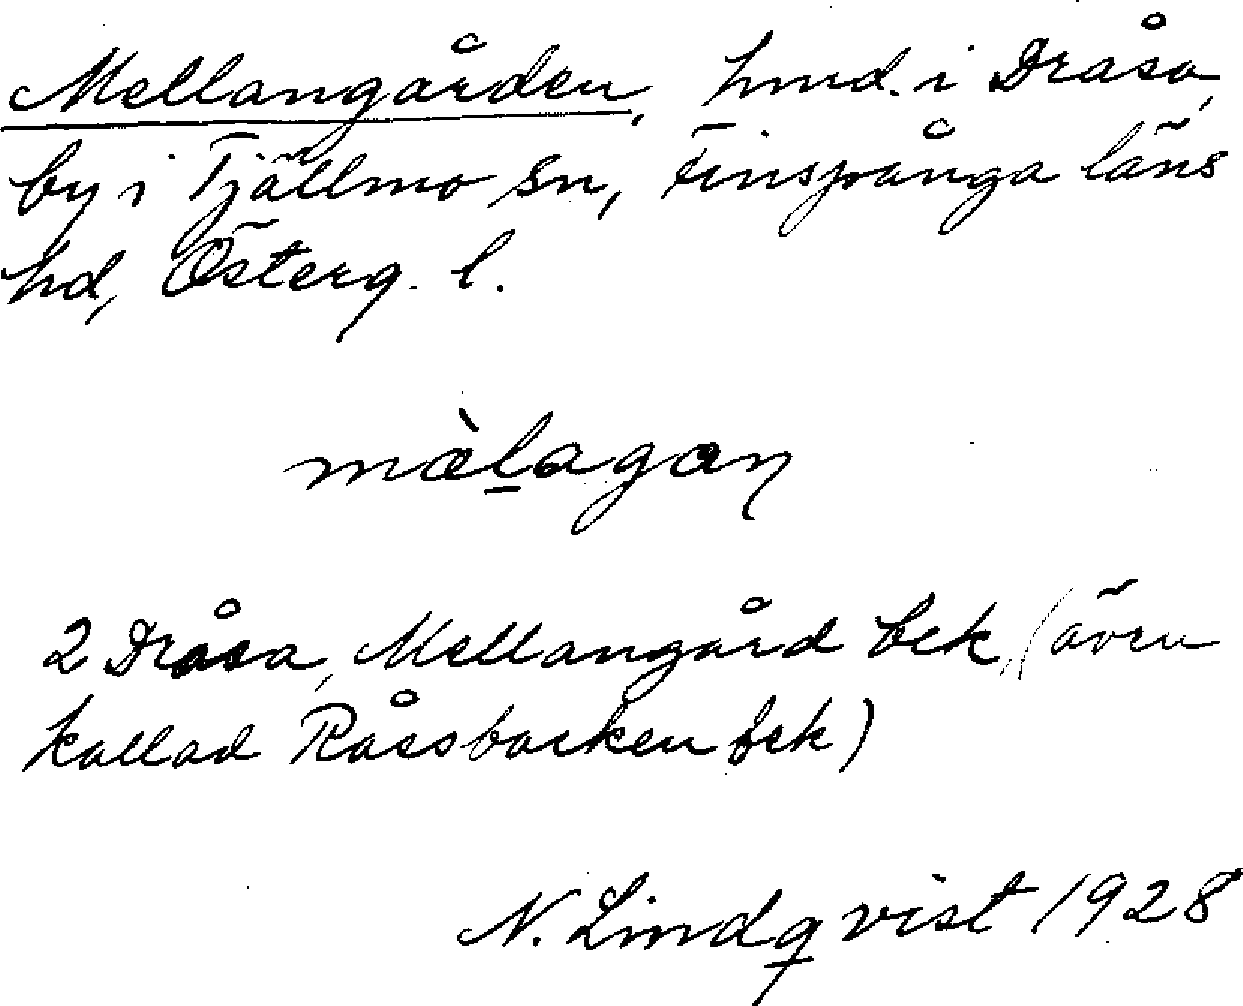 Mellangården, hmd. i Dråsa,
by i Tjällmo sn, Finspånga läns
hd, Österg. l.
mæ̀l̠agaɳ
2 Dråsa, Mellangård bek, (även
kallad Råssbacken bek)
N. Lindqvist 1928